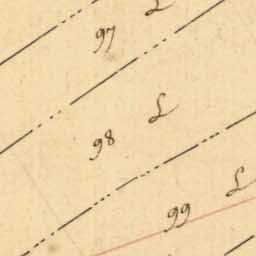 97 L
98 L
99 L